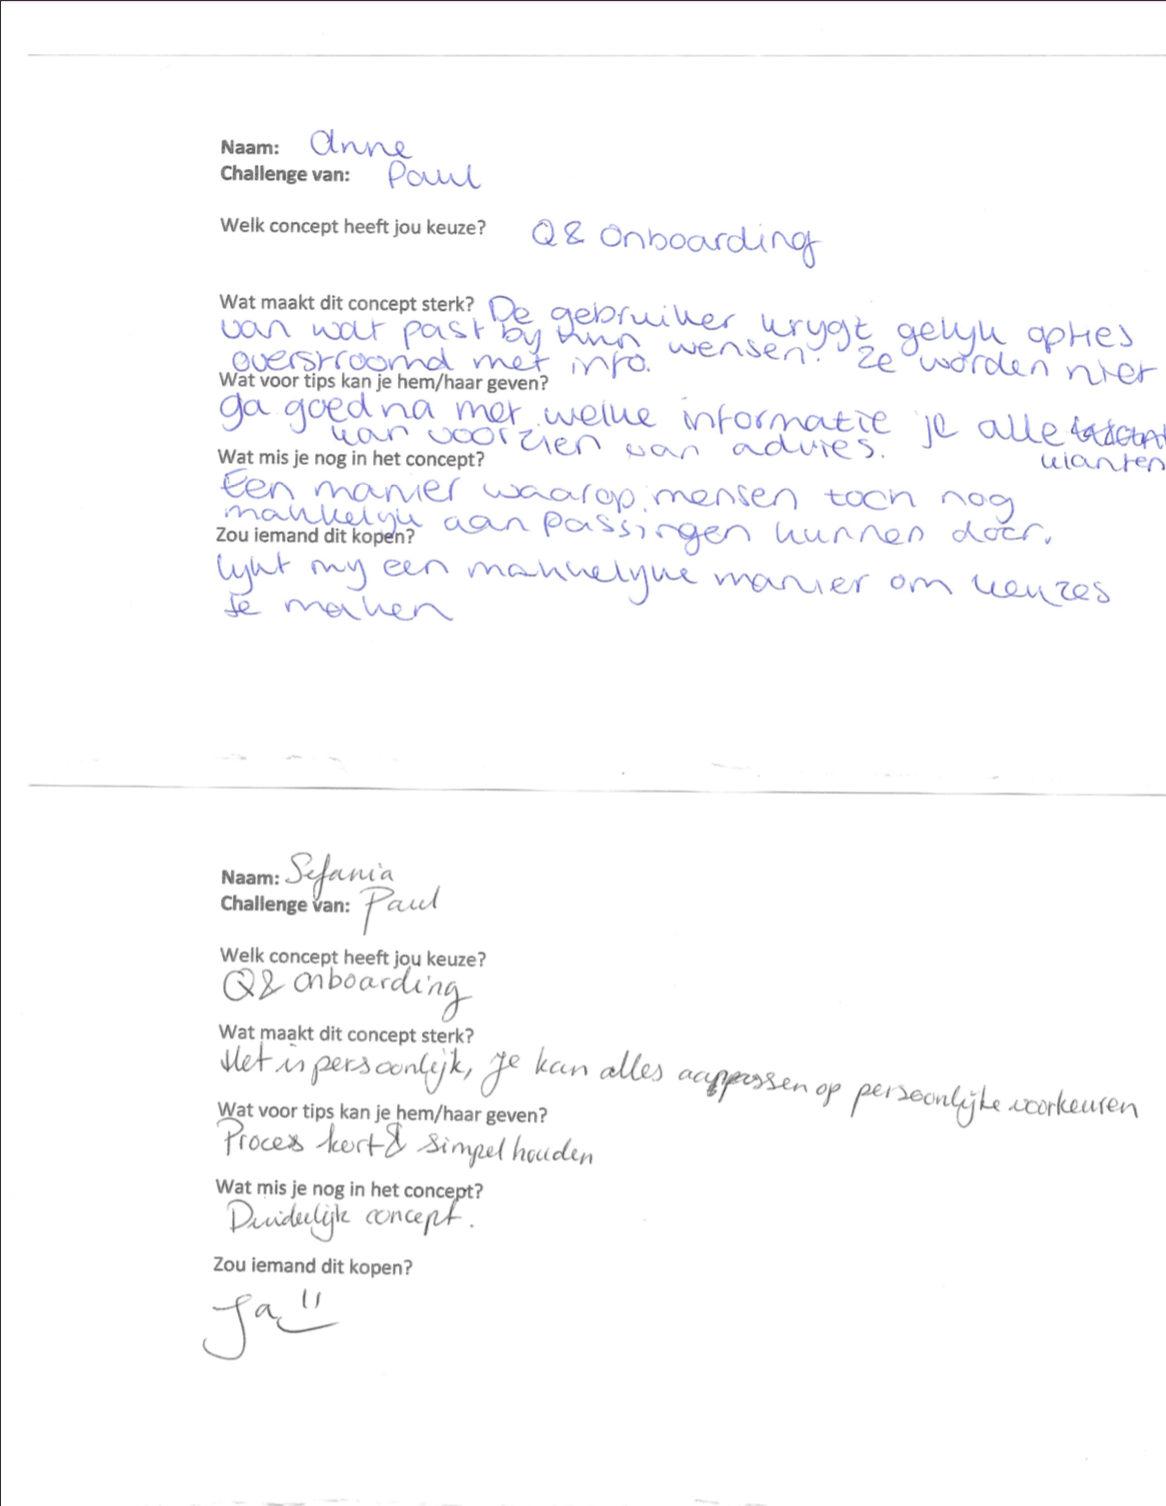 Naam: Anne
Challenge van: Paul
Welk concept heeft jou keuze? Q& Onboarding
Wat maakt dit concept sterk? De gebruiker krygt gelyk opties
van wat past by hun wensen. Ze worden niet
overstroomd met info.
Wat voor tips kan je hem/haar geven?
ga goed na met welke informatie je alle
klanten
kan voorzien van advies.
Wat mis je nog in het concept?
Een manier waarop mensen toch nog
makkelyk aanpassingen kunnen doen.
Zou iemand dit kopen?
lykt my een makkelyke manier om keuzes
te maken
Naam: Sefania
Challenge van: Paul
Welk concept heeft jou keuze?
Q& onboarding
Wat maakt dit concept sterk?
Het is persoonlijk, je kan alles aappassen op persoonlijke voorkeuren
Wat voor tips kan je hem/haar geven?
Proces kort & simpel houden
Wat mis je nog in het concept?
Duidelijk concept.
Zou iemand dit kopen?
Ja